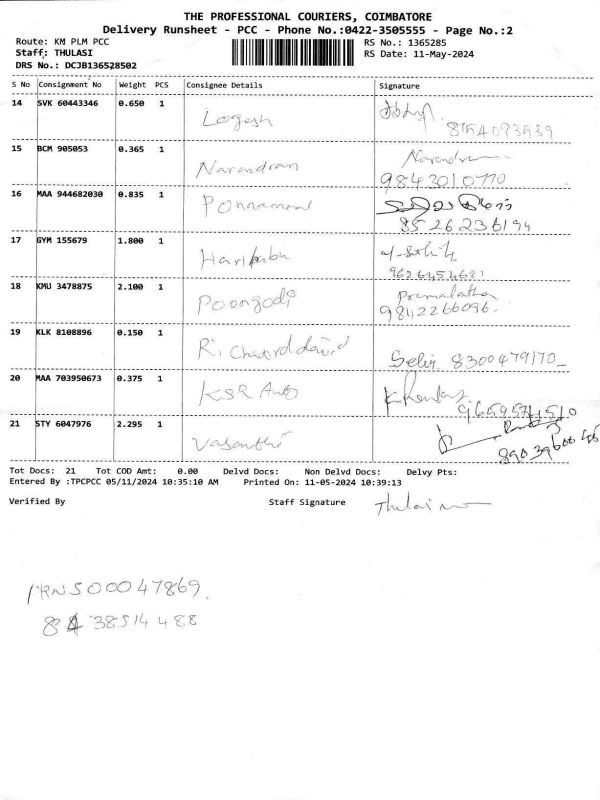 THE PROFESSIONAL COURIERS, COIMBATORE
Delivery Runsheet - PCC - Phone No.:0422-3505555 - Page No.:2
Route: KM PLM PCC
RS No.: 1365285
Staff: THULASI
RS Date: 11-May-2024
DRS No.: DCJB136528502
S No Consignment No Weight PCS Consignee Details Signature
14 SVK 60443346 0.650 1 Logesh
8754093539
15 BCM 905053 0.365 1 Narendran Narendran
9843010770
16 MAA 944682030 0.835 1
8526236194
17 GYM 155679 1.800 1 Haribabu
9626454681
18 KMU 3478875 2.100 1 Poongodi Premalatha
9842266096.
19 KLK 8108896 0.150 1 Richard david Selvi 8300479170
20 MAA 703950673 0.375 1 KSR Auto
9659574510
21 STY 6047976 2.295 1 Vasanthi
Tot Docs: 21 Tot COD Amt: 0.00 Delvd Docs: Non Delvd Docs: Delvy Pts:
Entered By :TPCPCC 05/11/2024 10:35:10 AM Printed On: 11-05-2024 10:39:13
Verified By Staff Signature Thulasi
PRN500047869.
8438514488